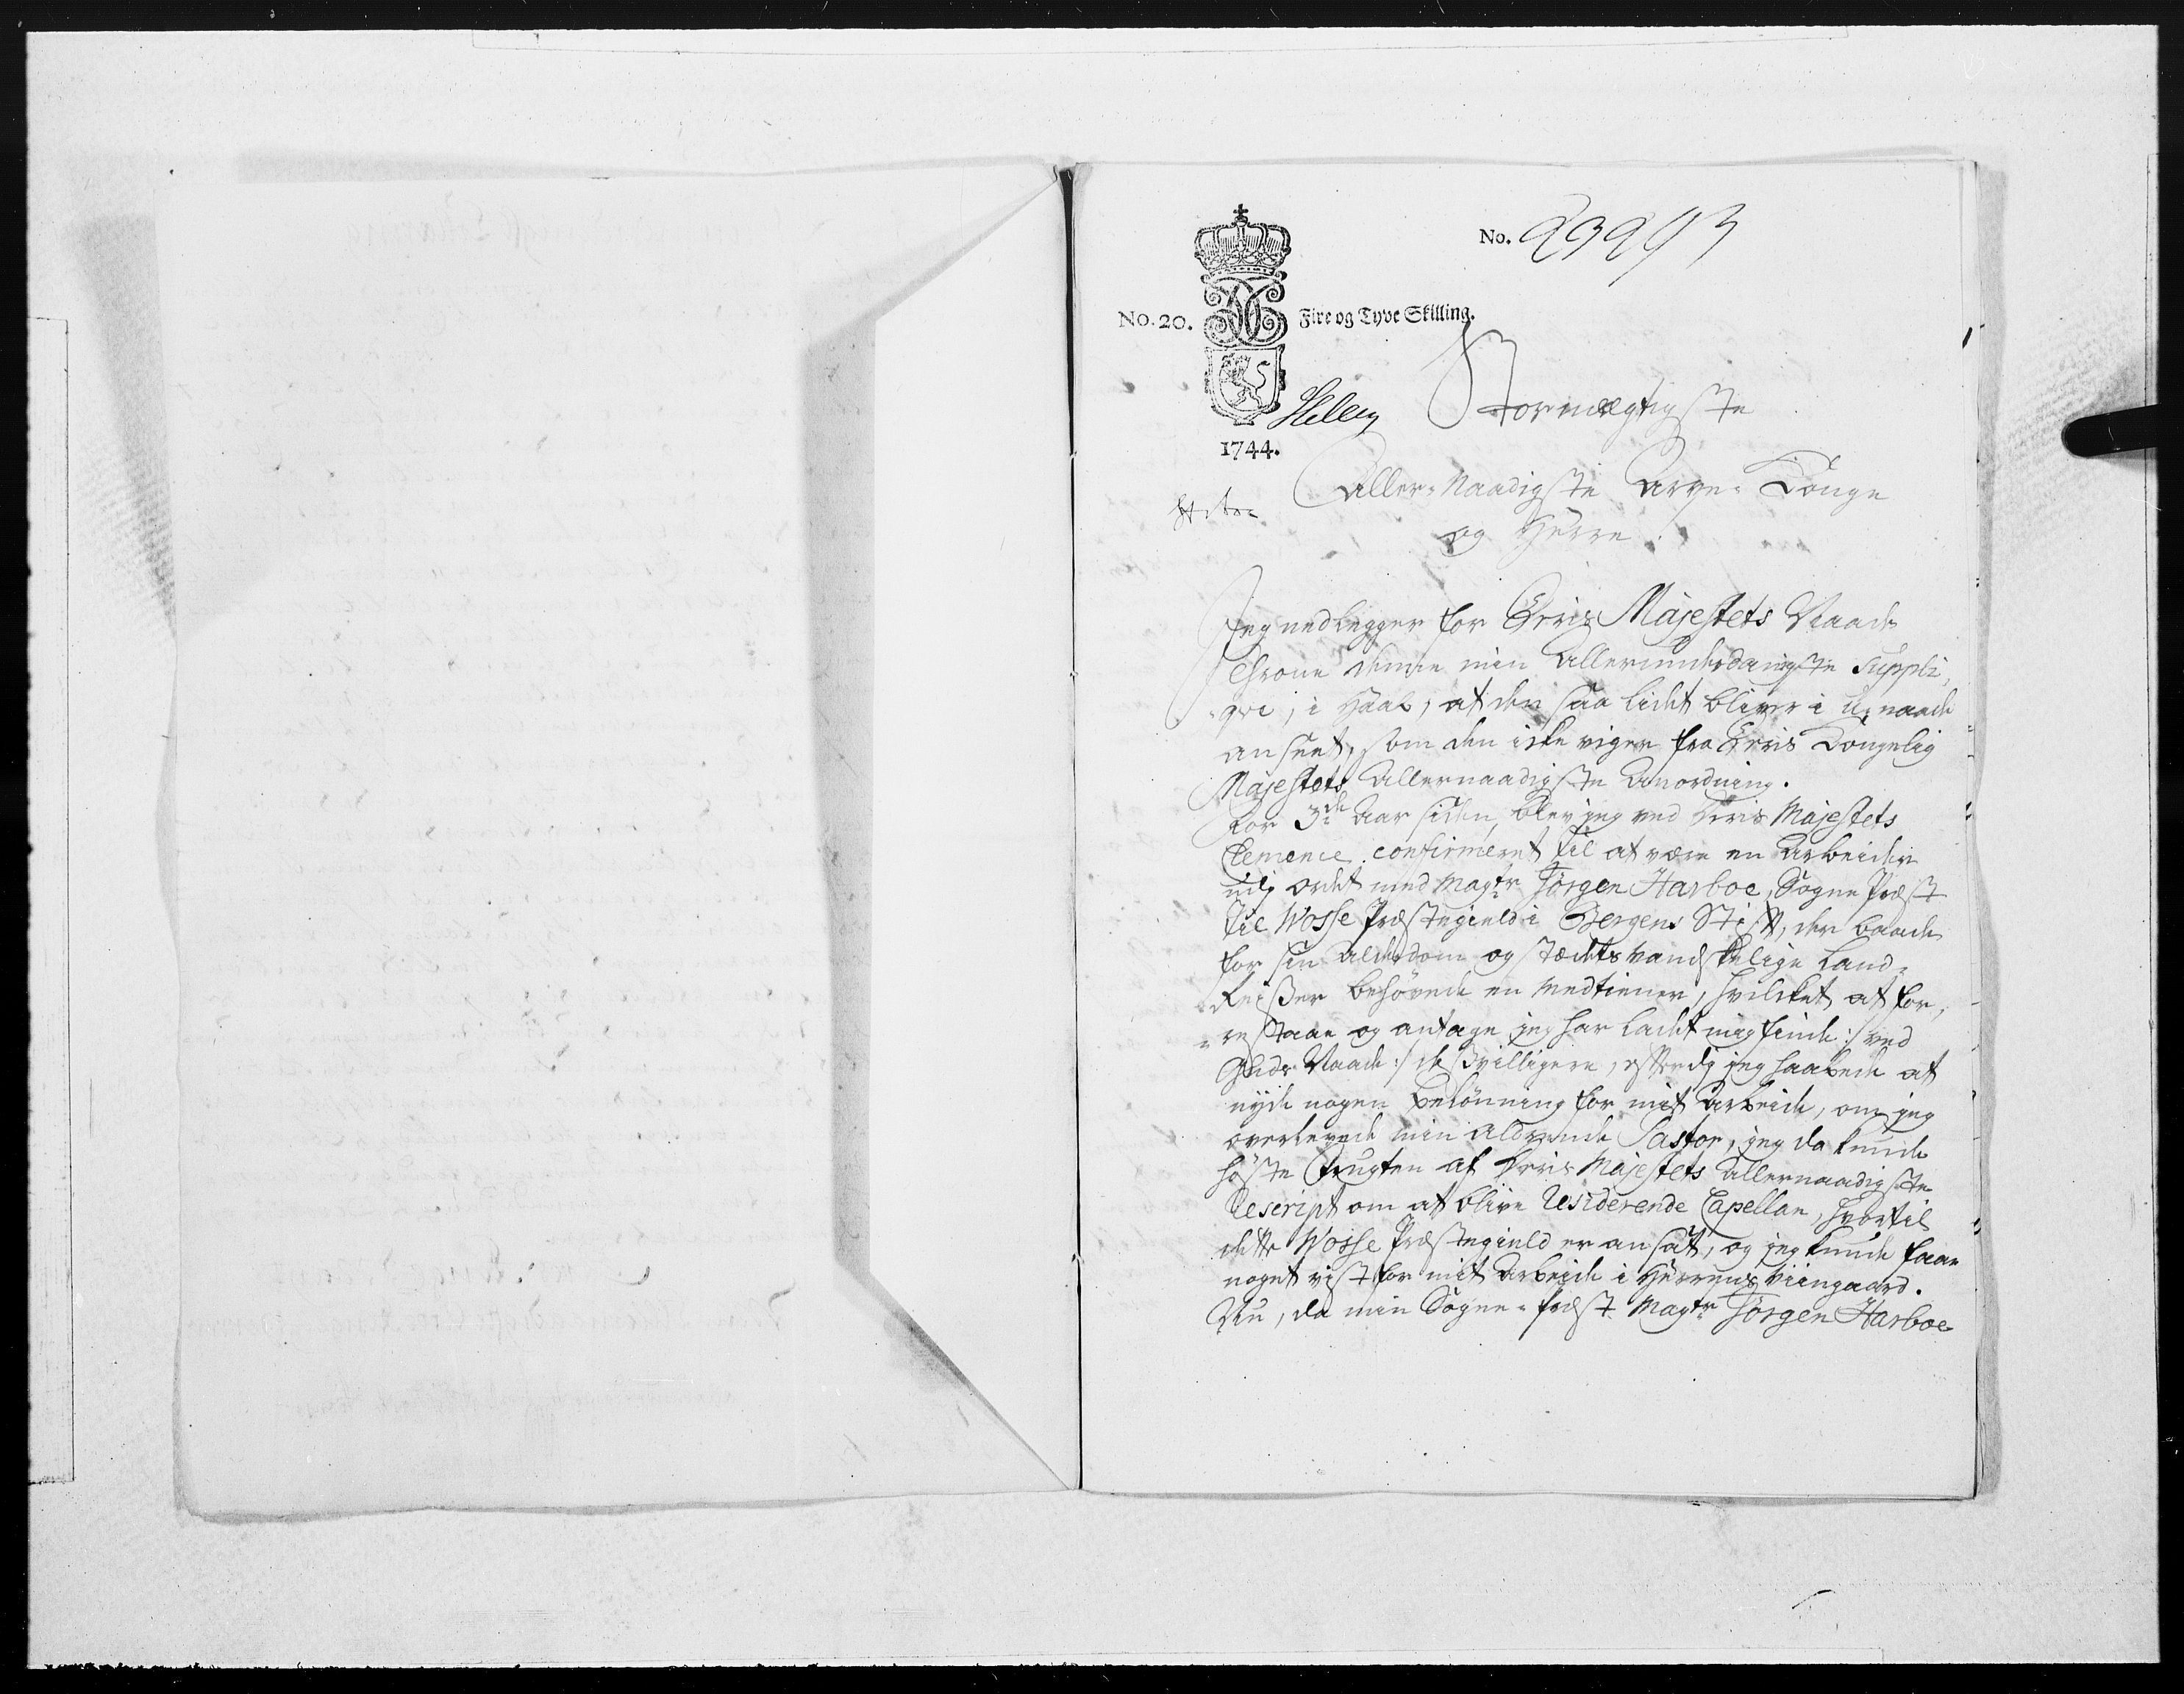 No. 23293
No. 20. Fire og Tyve Skilling.
1744.
Stormægtigste
Aller-Naadigste Arve-Konge
og Herre.
Jeg nedlegger for Eders Majestets Naade
Throne denne min allerunderdanigste Suppli,
qve, i Haab, at den saa lidet bliver i u-naade
anseet, som den icke viger fra Eders Kongelig
Majestets allernaadigste Anordning.
For 3de Aar siden, blev jeg ved Eders Majestets
Clemence confirmeret til at være en Arbeider
udj ordet med Magtr Jörgen Harboe, Sogne Præst
til Wosse Præstegield i Bergens Stift, der baade
for sin alderdom og stædets vandskelige Land-
Reiser behövede en Medtiener, hvilcket at for,
restaae og antage jeg har ladet mig finde :/ ved
Guds Naade :/ dessvilligere, efterdj jeg haabede at
nyde nogen belönning for mit Arbeide, om jeg
overlevede min aldrende Pastor, jeg da kunde
höste Frugten af Eders Majestets allernaadigste
Rescript om at blive Residerende Capellan, hvortil
dette Wosse Præstegield er ansat, og jeg kunde faae
noget vist for mit Arbeide i Herrens Viingaard.
Nu, da min Sogne-Præst Magtr Jörgen Harboe